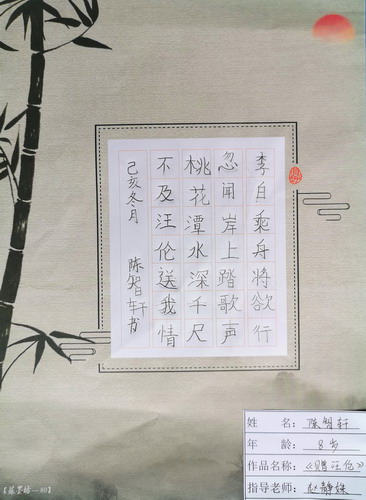 李白乘舟将欲行
忽闻岸上踏歌声
桃花潭水深千尺
不及汪伦送我情
己亥冬月 陈智轩书
姓 名： 陈智轩
年 龄： 8岁
作品名称： 《赠汪伦》
指导老师： 赵静姝